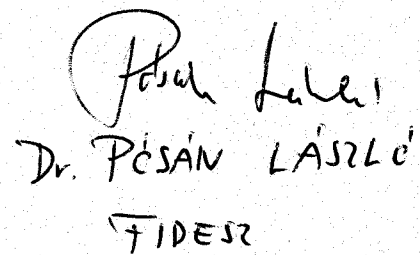 Pósán László
Dr. PÓSÁN LÁSZLÓ
FIDESZ